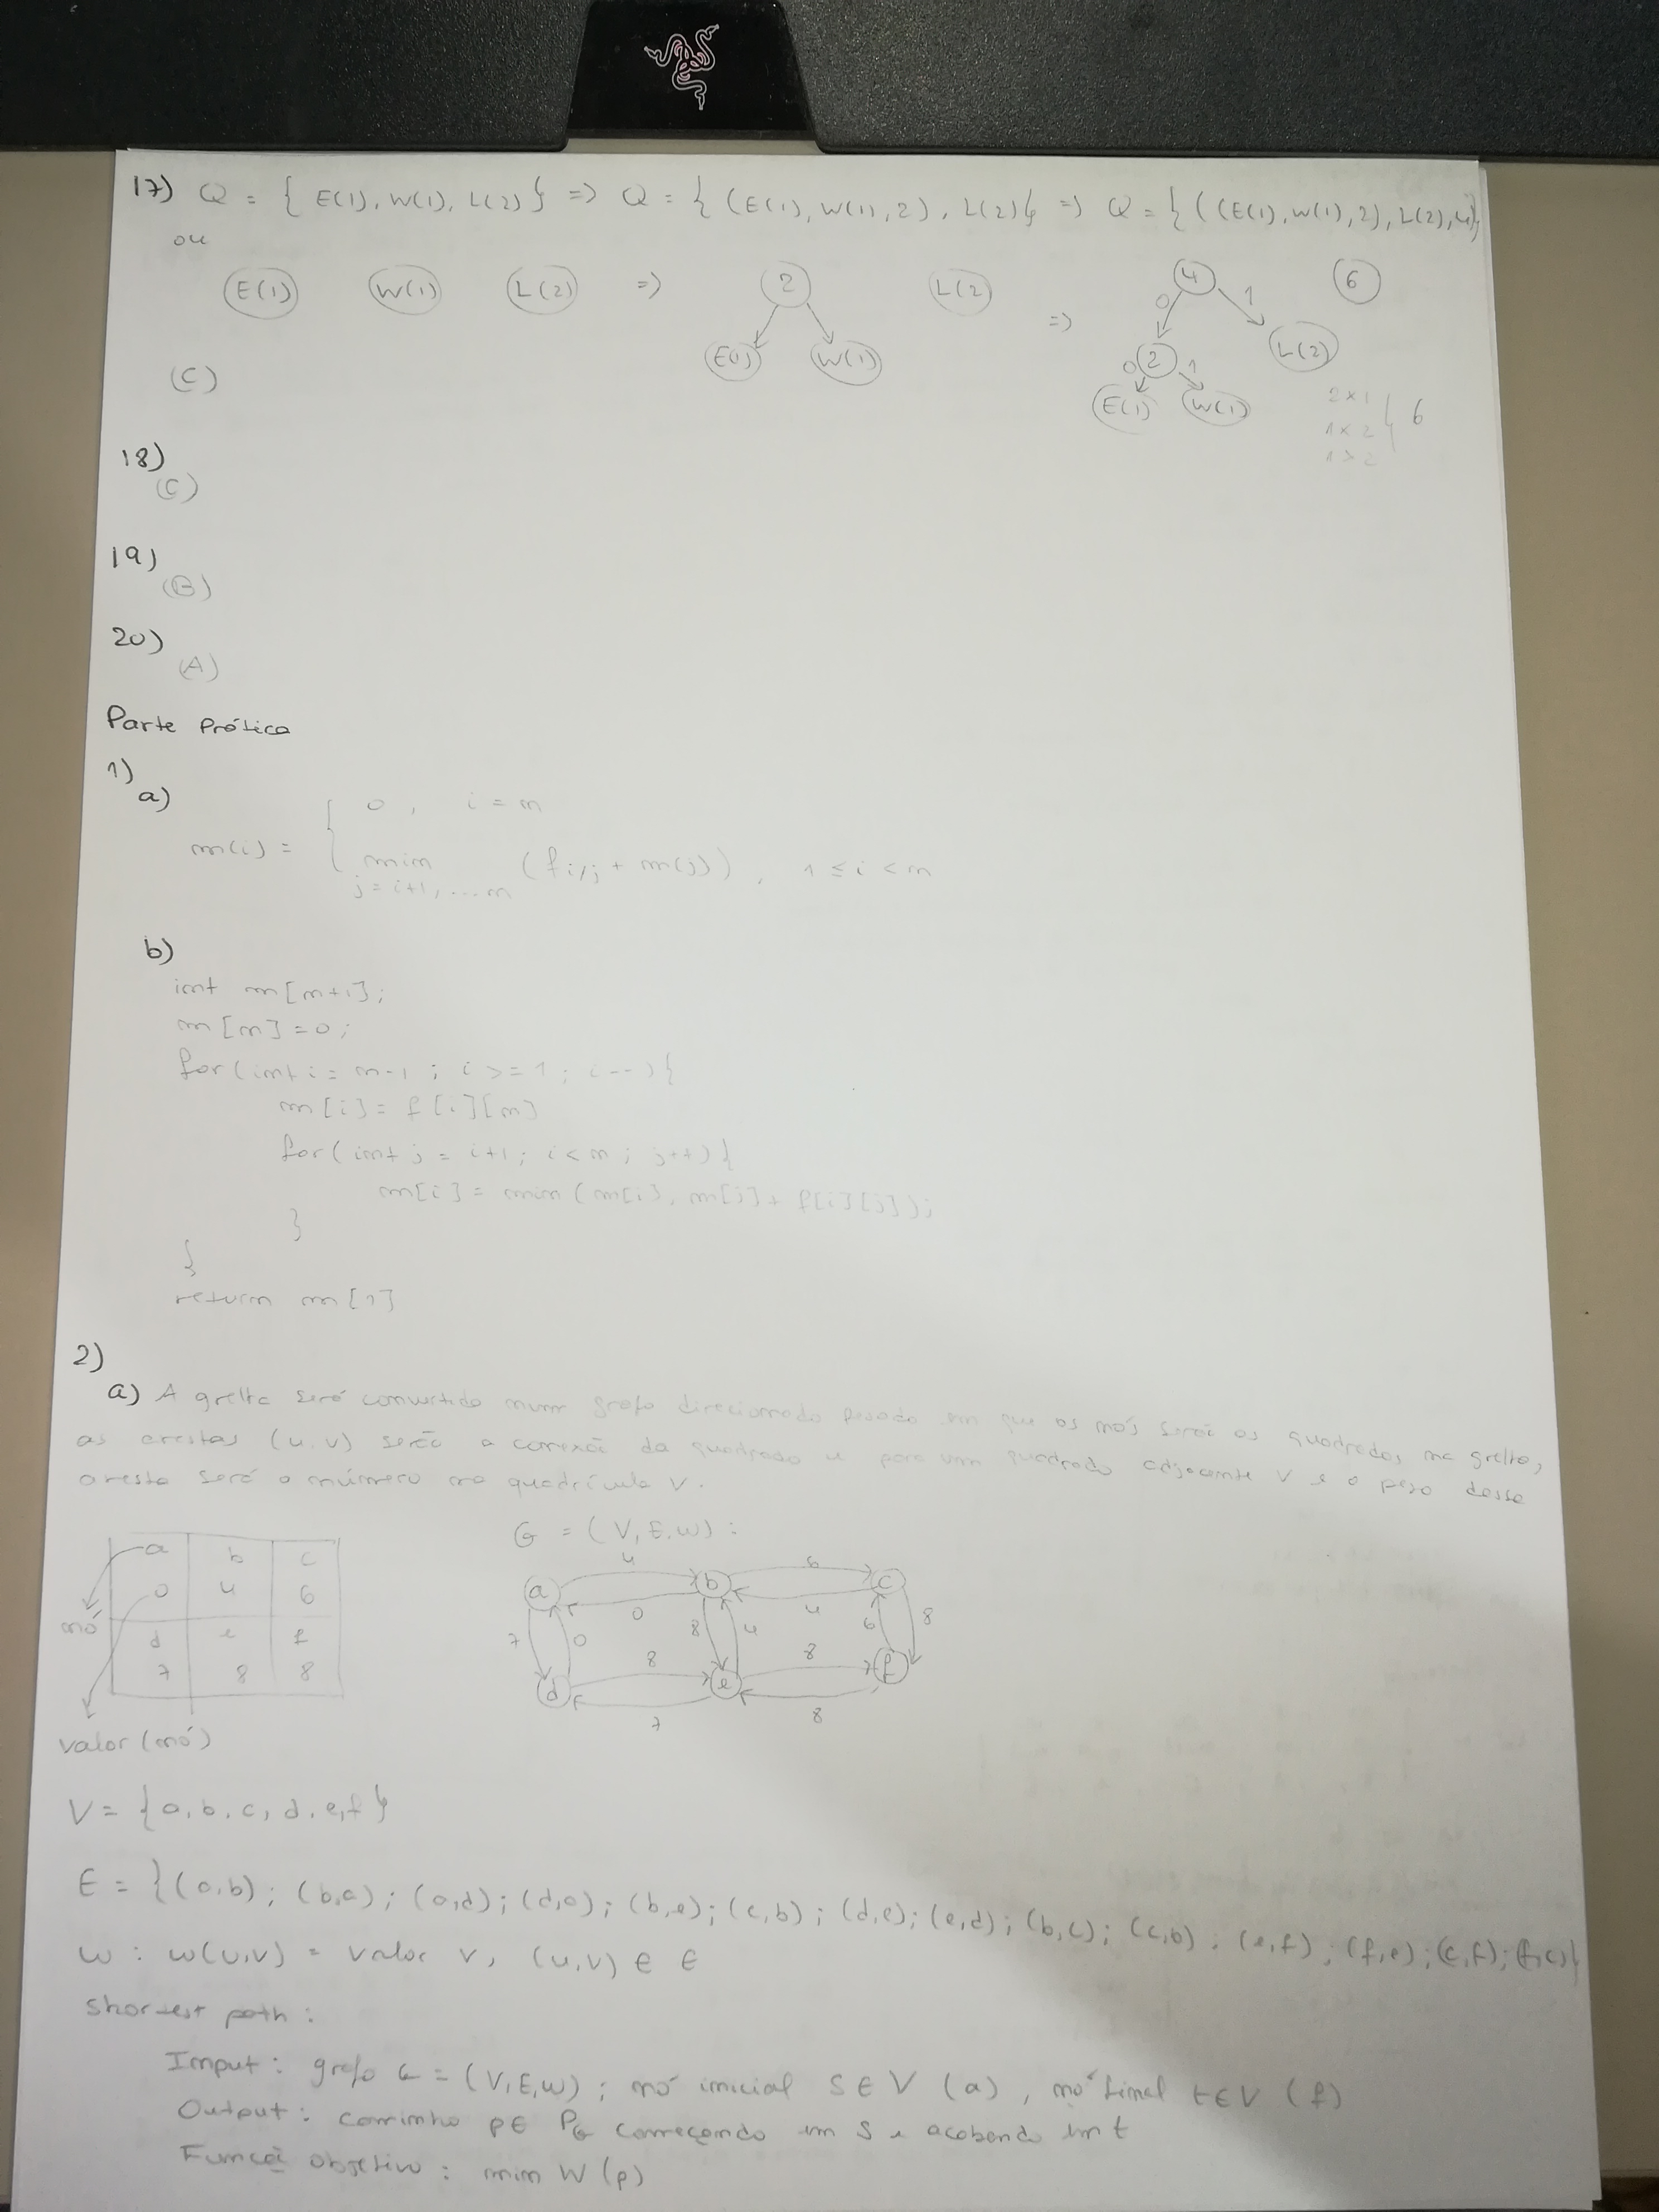 17) Q = { E(1), W(1), L(2) } => Q = { (E(1), W(1), 2), L(2) } => Q = { ((E(1), W(1), 2), L(2), 4) }
ou
E(1) W(1) L(2) => 2 L(2) => 4 6
0 1
E(1) W(1) 2 L(2)
0 1
E(1) W(1)
2×1
1×2 6
1×2
(C)
18)
(C)
19)
(B)
20)
(A)
Parte Prática
1)
a)
m(i) = { 0, i = n
min (fi,j + m(j)), 1 ≤ i < n
j = i+1, ...n
b)
int m[n+1];
m[n] = 0;
for(int i = n-1 ; i >= 1 ; i--){
m[i] = f[i][n]
for( int j = i+1; i < n ; j++){
m[i] = min ( m[i], m[j] + f[i][j]);
}
}
return m[1]
2)
a) A grelha será convertida num grafo direcionado pesado em que os nós serão os quadrados na grelha,
as arestas (u,v) serão a conexão da quadrado u para um quadrado adjacente v e o peso dessa
aresta será o número na quadrícula v.
G = (V, E, w) :
a b c
0 4 6
nó
d e f
7 8 8
valor (nó)
4 6
a b c
0 4
7 0 8 4 6 8
8 8
d e f
7 8
V = {a, b, c, d, e, f}
E = {(a,b); (b,a); (a,d); (d,a); (b,e); (e,b); (d,e); (e,d); (b,c); (c,b); (e,f); (f,e); (c,f); (f,c)}
w : w(u,v) = valor v, (u,v) ∈ E
shortest path :
Input : grafo G = (V,E,w) ; nó inicial s ∈ V (a) , nó final t ∈ V (f)
Output : caminho p ∈ PG começando em s e acabando em t
Função objetivo : min W (p)